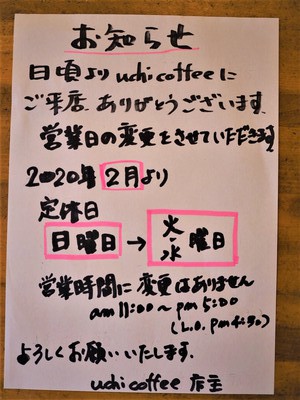 お知らせ
日頃より uchi coffee に
ご来店、ありがとうございます。
営業日の変更をさせていただきます
2020年 2月より
定休日
日曜日 → 火・水 曜日
営業時間に変更はありません
am 11:00 ~ pm 5:00
(L.O. pm 4:30)
よろしくお願いいたします。
uchi coffee 店主